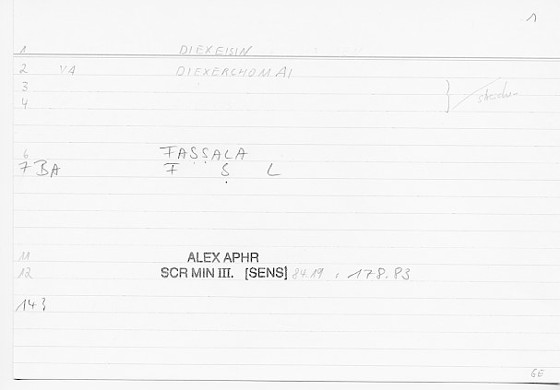 1
1 DIEXEISIN
2 V4 DIEXERCHOMAI
3
4
6 FASSALA
7 BA F S L
11 ALEX APHR
12 SCR MIN III. [SENS] 84.19 , 178.83
14 }
GE